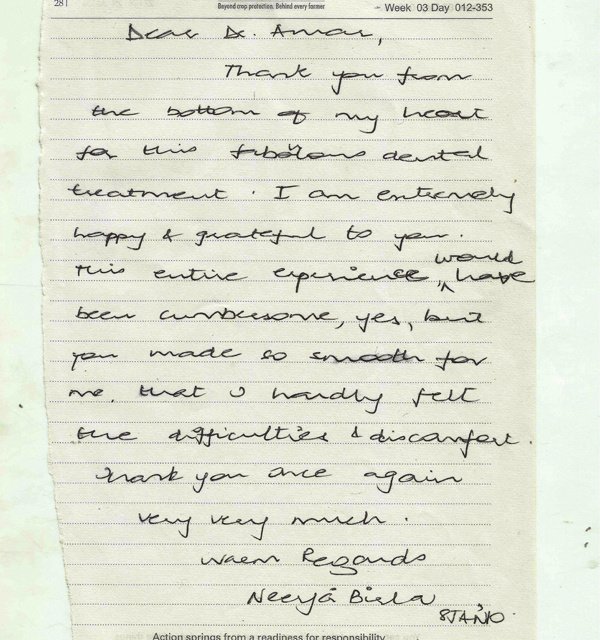 281
Beyond crop protection. Behind every farmer
Week 03 Day 012-353
Dear Dr. Amar,
Thank you from
the bottom of my heart
for this fabulous dental
treatment. I am extremely
happy & grateful to you.
This entire experience would have
been cumbersome, yes, but
you made so smooth for
me, that I hardly felt
the difficulties & discomfort.
Thank you once again
very very much.
Warm Regards
Neerja Birla
8 JAN'10
Action springs from a readiness for responsibility